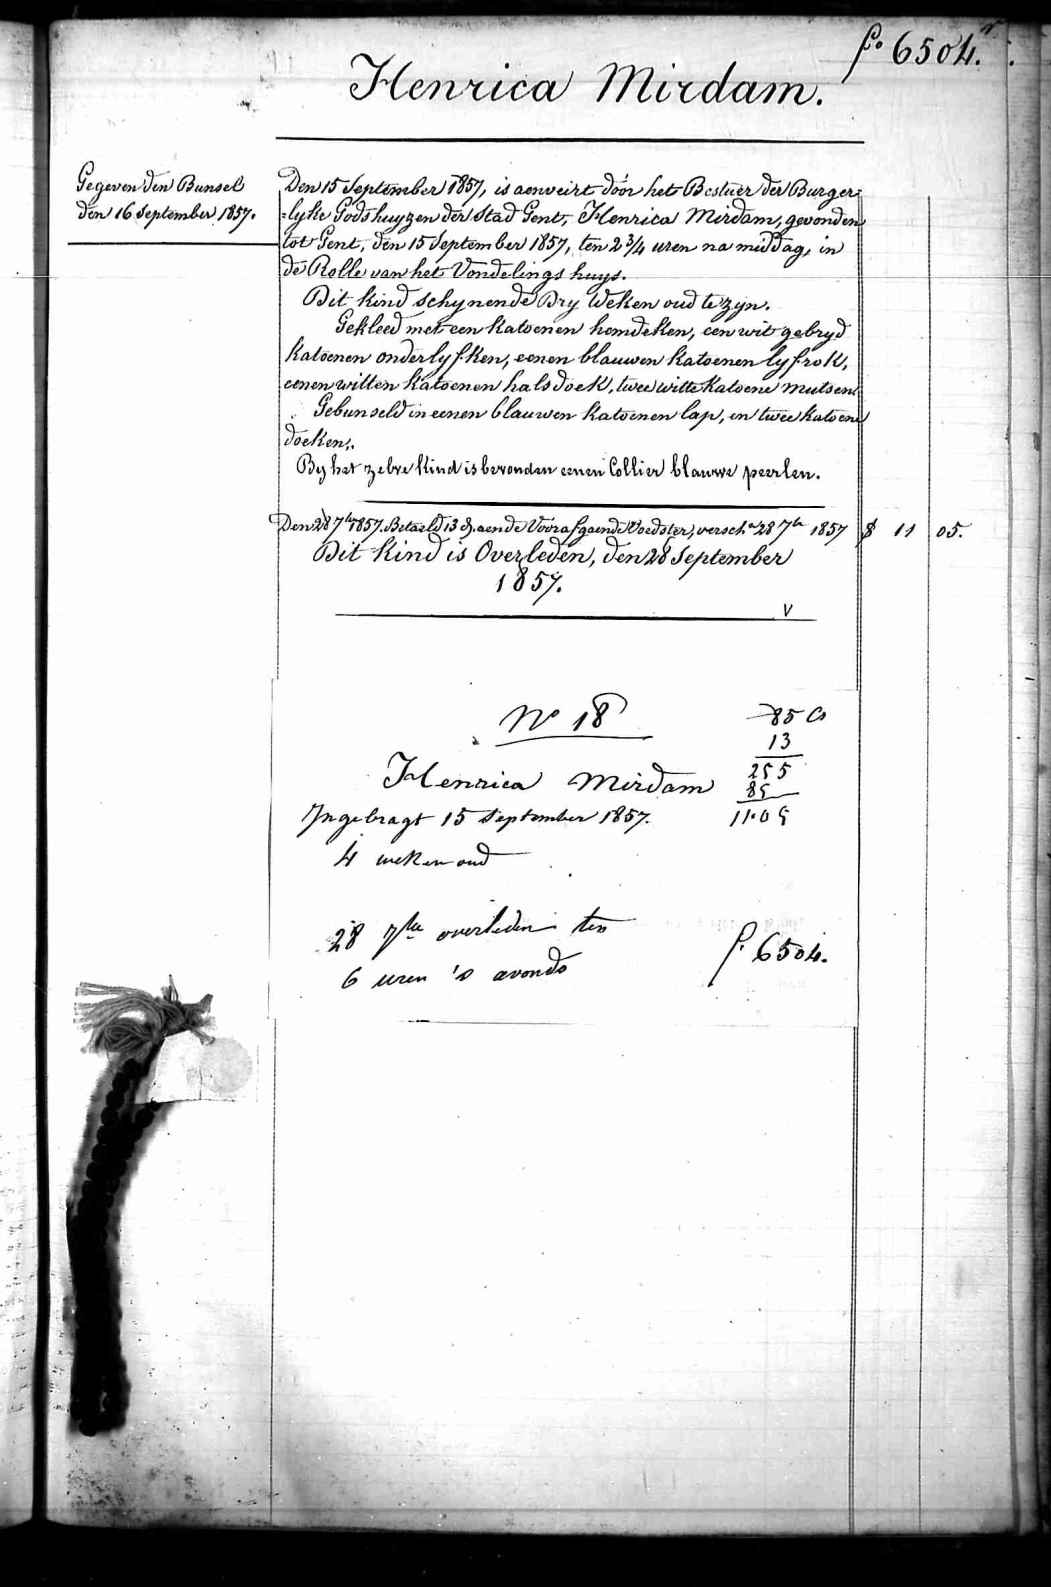 fo 6504.
Henrica Mirdam.
Gegeven den Bunsel
den 16 September 1857.
Den 15 September 1857, is aenveirt door het Bestuer der Burger=
=lyke Godshuyzen der Stad Gent, Henrica Mirdam, gevonden
tot Gent, den 15 September 1857, ten 2 3/4 uren na middag, in
de Rolle van het Vondelings huys.
Dit kind schynende Dry Weken oud te zyn.
Gekleed met een Katoenen hemdeken, een wit gebryd
Katoenen onderlyfken, eenen blauwen Katoenen lyfrok,
eenen witten Katoenen halsdoek, twee witte Katoene mutsen
Gebunseld in eenen blauwen Katoenen lap, en twee Katoene
doeken.
By het zelve Kind is bevonden eenen Collier blauwe peerlen.
Den 28 7bre 1857. Betaeld 13 Daen de Voorafgaende Voedster, versch. 28 7bre 1857 $ 11 05.
Dit kind is Overleden, den 28 September
1857.
V
No 18
85 Cs
13
255
85
11.05
Henrica Mirdam
Ingebragt 15 September 1857.
4 weken oud
28 7bre overleden ten
6 uren 's avonds
f. 6504.